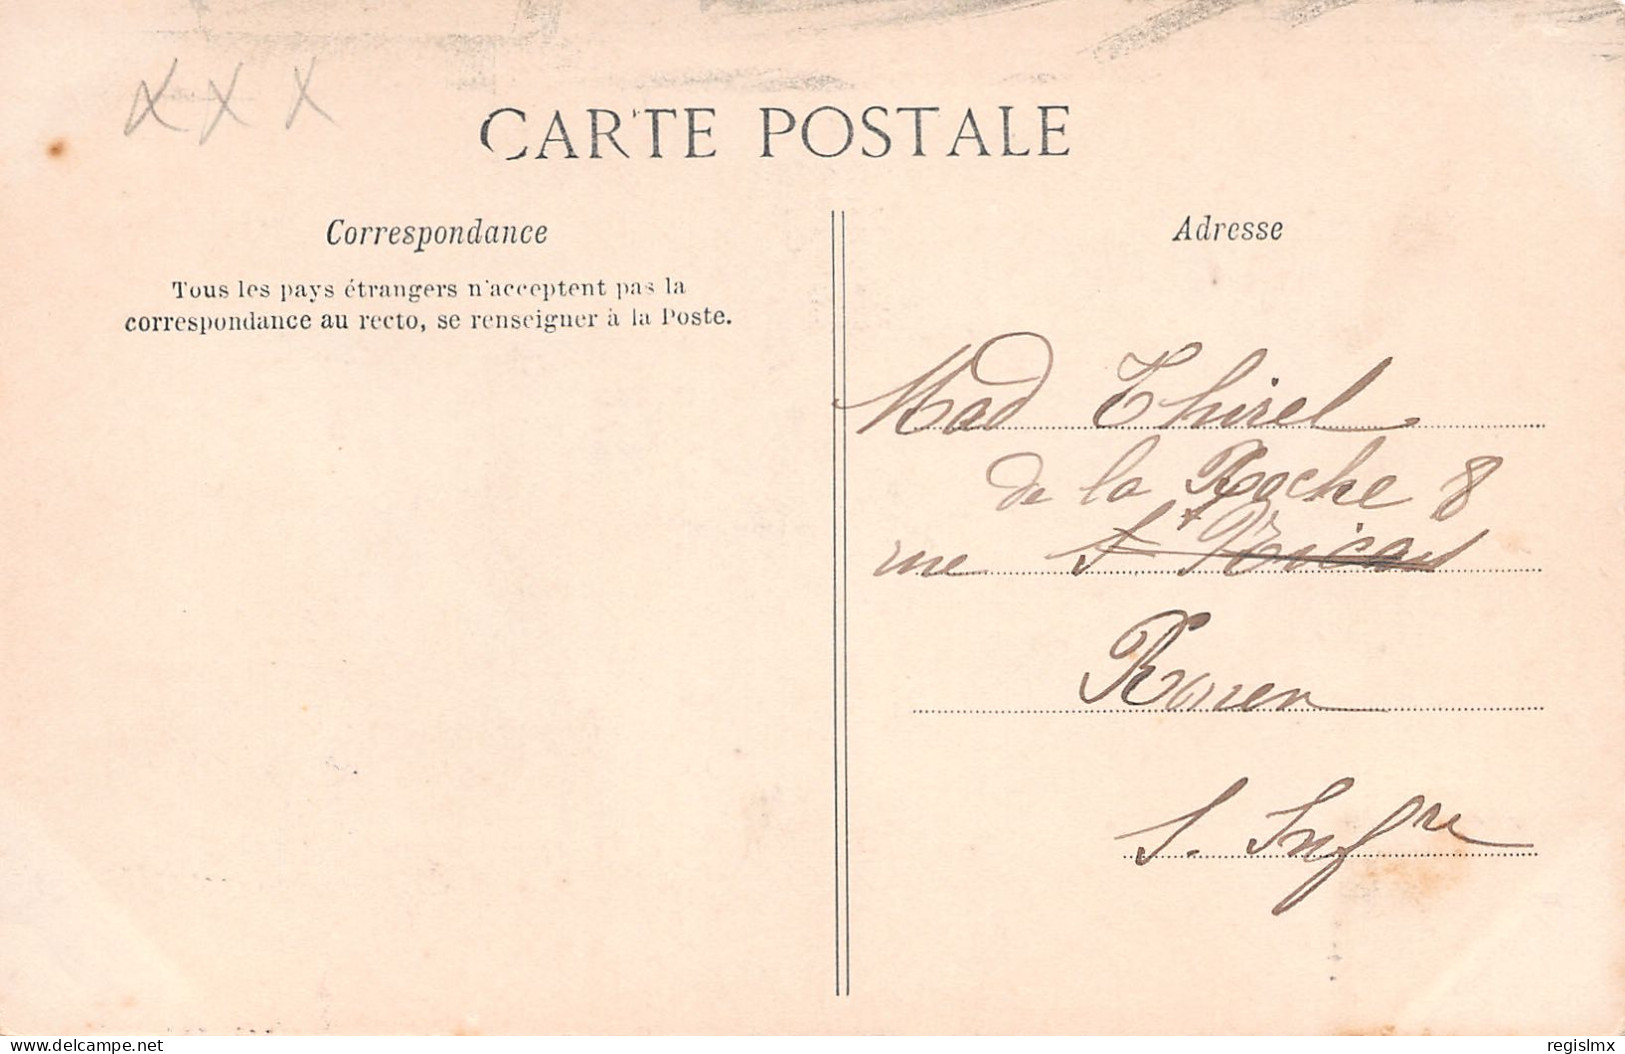 CARTE POSTALE
Correspondance
Tous les pays étrangers n'acceptent pas la
correspondance au recto, se renseigner à la Poste.
Adresse
Mad Thirel
de la Roche 8
rue St
Rouen
S. Infre
www.delcampe.net
regislmx